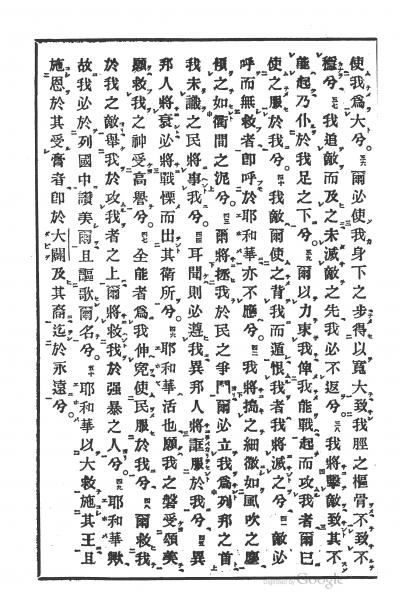 使我爲大兮。三六爾必使我身下之步得以寬大致我脛之樞骨不致不
穩兮三七我追敵而及之未滅敵之先我必不返兮。三八我將擊敵致其不
能起乃仆於我足之下兮。三九爾以力束我俾我能戰起而攻我者爾已
使之服於我兮。四十我敵爾使之背我而遁恨我者我將滅之兮。四一敵必
呼而無救者卽呼於耶和華亦不應兮。四二我將擣之細微如風吹之塵
傾之如衢間之泥兮。四三爾將拯我於民之爭鬭爾必立我爲列邦之首
我未識之民將事我兮。四四耳聞則必遵我異邦人將誆服於我兮。四五異
邦人將衰必將戰慄而出其衛所兮。四六耶和華活也願我之磐受頌美
願救我之神受高舉兮。四七全能者爲我伸寃使民服於我兮。四八爾救我
於我之敵舉我於攻我者之上爾將救我於强暴之人兮。四九耶和華歟
故我必於列國中讚美爾且謳歌爾名兮。五十耶和華以大救施其王且
施恩於其受膏者卽於大闢及其裔迄於永遠兮。
Digitized by Google